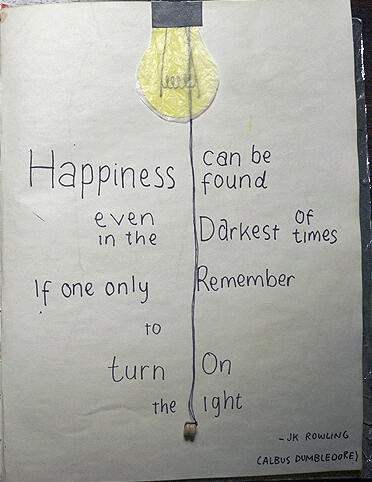 Happiness can be
found
even
in the Darkest of
times
If one only Remember
to
turn On
the light
- JK ROWLING
(ALBUS DUMBLEDORE)